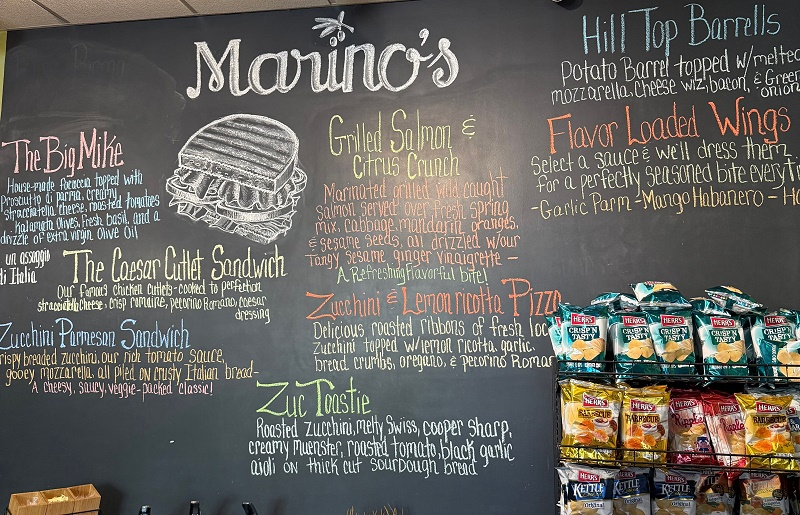 Marino's
The Big Mike
House-made focaccia topped with
Prosciutto di parma, creamy
stracciatella cheese, roasted tomatoes
kalamata olives, fresh basil, and a
drizzle of extra virgin Olive Oil
un assaggio
di Italia
The Caesar Cutlet Sandwich
Our famous chicken cutlets-cooked to perfection
stracciatella cheese, crisp romaine, pecorino Romano, caesar
dressing
Zucchini Parmesan Sandwich
crispy breaded zucchini, our rich tomato sauce,
gooey mozzarella, all piled on crusty Italian bread-
A cheesy, saucy, veggie-packed classic!
Grilled Salmon &
Citrus Crunch
Marinated grilled wild caught
salmon served over fresh spring
mix, cabbage, mandarin oranges,
& sesame seeds, all drizzled w/our
tangy sesame ginger vinaigrette-
A Refreshing flavorful bite!
Zucchini & Lemon ricotta Pizza
Delicious roasted ribbons of fresh
zucchini topped w/lemon ricotta, garlic,
bread crumbs, oregano, & pecorino Romano
Zuc Toastie
Roasted zucchini, melty Swiss, cooper sharp,
creamy muenster, roasted tomato, black garlic
aioli on thick cut sourdough bread
Hill Top Barrells
Potato Barrel topped w/melted
mozzarella, cheese wiz, bacon, & Green
onions
Flavor Loaded Wings
Select a sauce & we'll dress them
for a perfectly seasoned bite every
-Garlic Parm -Mango Habanero -
HERR'S
CRISP N
TASTY
HERR'S
CRISP N
TASTY
HERR'S
CRISP N
TASTY
HERR'S
CRISP N
TASTY
HERR'S
CRISP N
TASTY
HERR'S
BARBECUE
HERR'S
BARBECUE
HERR'S
Ripples
HERR'S
Ripples
HERR'S
BARBECUE
HERR'S
KETTLE
Original
HERR'S
KETTLE
Original
HERR'S
KETTLE
HERR'S
KETTLE
HERR'S
KETTLE
Original